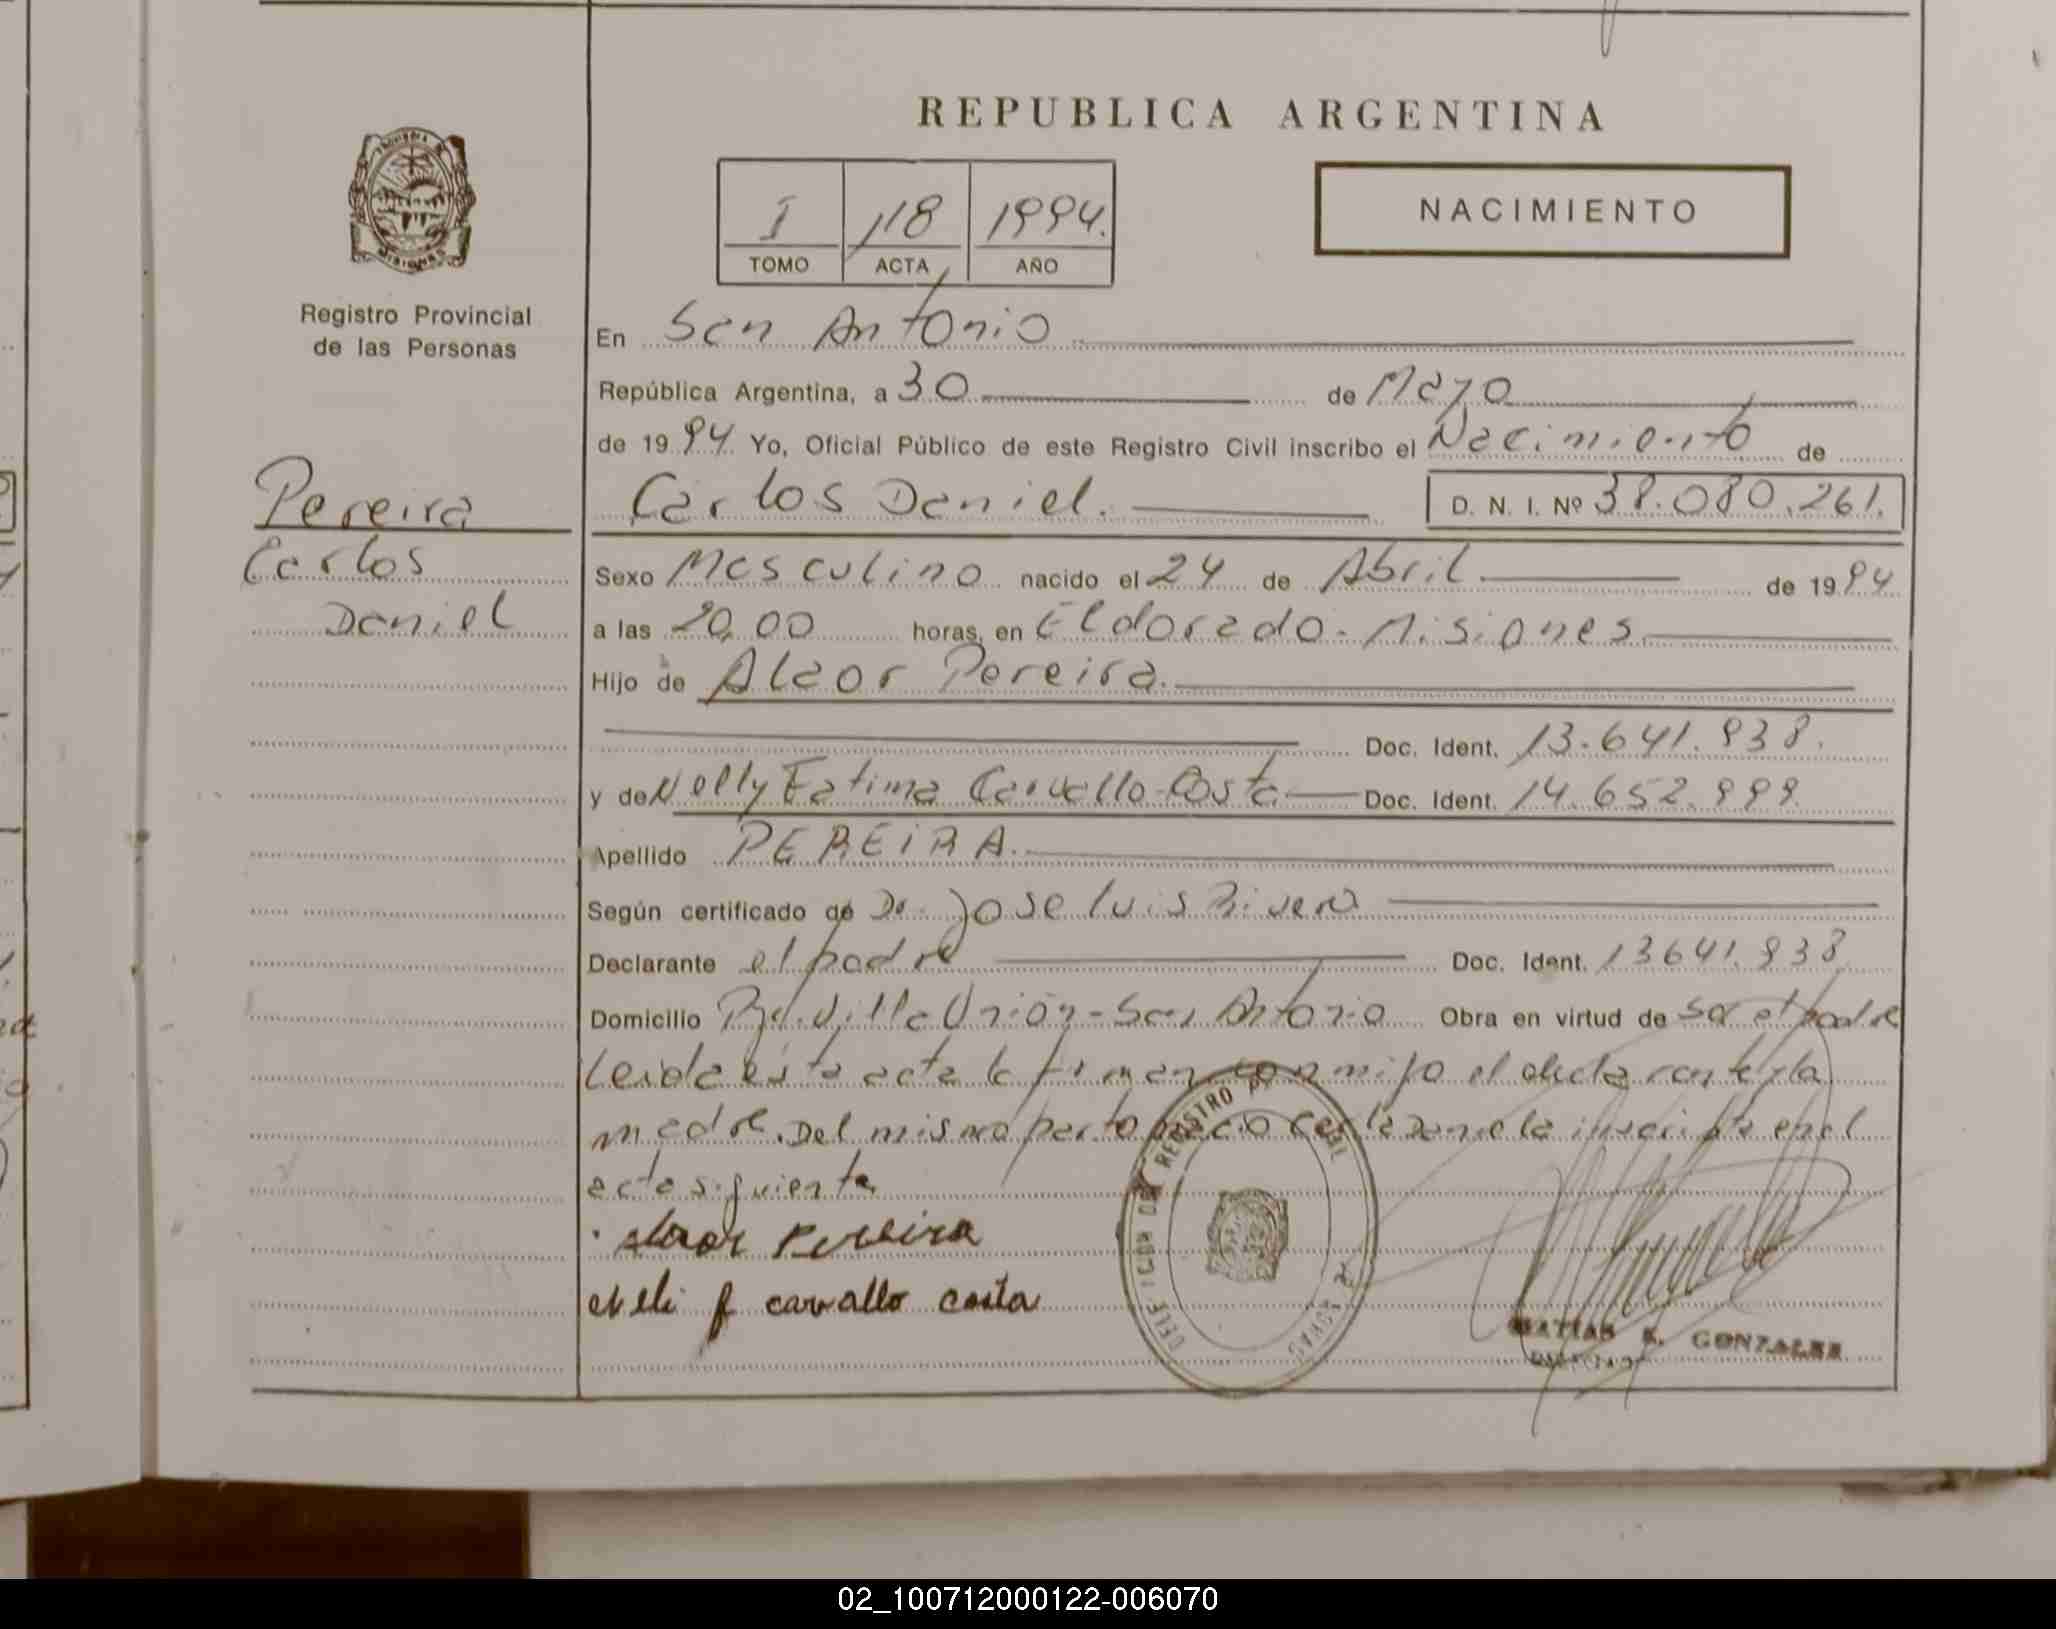 REPUBLICA ARGENTINA
NACIMIENTO
I 118 1994.
TOMO ACTA AÑO
Registro Provincial
de las Personas
En San Antonio
República Argentina, a 30 de Mayo
de 1994. Yo, Oficial Público de este Registro Civil inscribo el Nacimiento de
Pereira
Carlos Daniel. D. N. I. Nº 38.080.261.
Carlos
Sexo Masculino nacido el 24 de Abril de 1994
Daniel
a las 20,00 horas, en Eldorado - Misiones
Hijo de Alaor Pereira.
Doc. Ident. 13.641.938.
y de Nelly Fatima Carvallo Costa Doc. Ident. 14.652.999.
Apellido PEREIRA.
Según certificado de Dr. Jose Luis Rivero
Declarante el padre Doc. Ident. 13641.938
Domicilio Pje. Villa Unión - San Antonio Obra en virtud de ser el padre
Leida esta acta la firman conmigo el declarante y la
madre. Del mismo parto nacio Carla Daniela inscripta en el
acta siguiente
Alaor Pereira
Neli f carvallo costa
DELEGACION DEL REGISTRO
MATIAS R. GONZALEZ
02_100712000122-006070